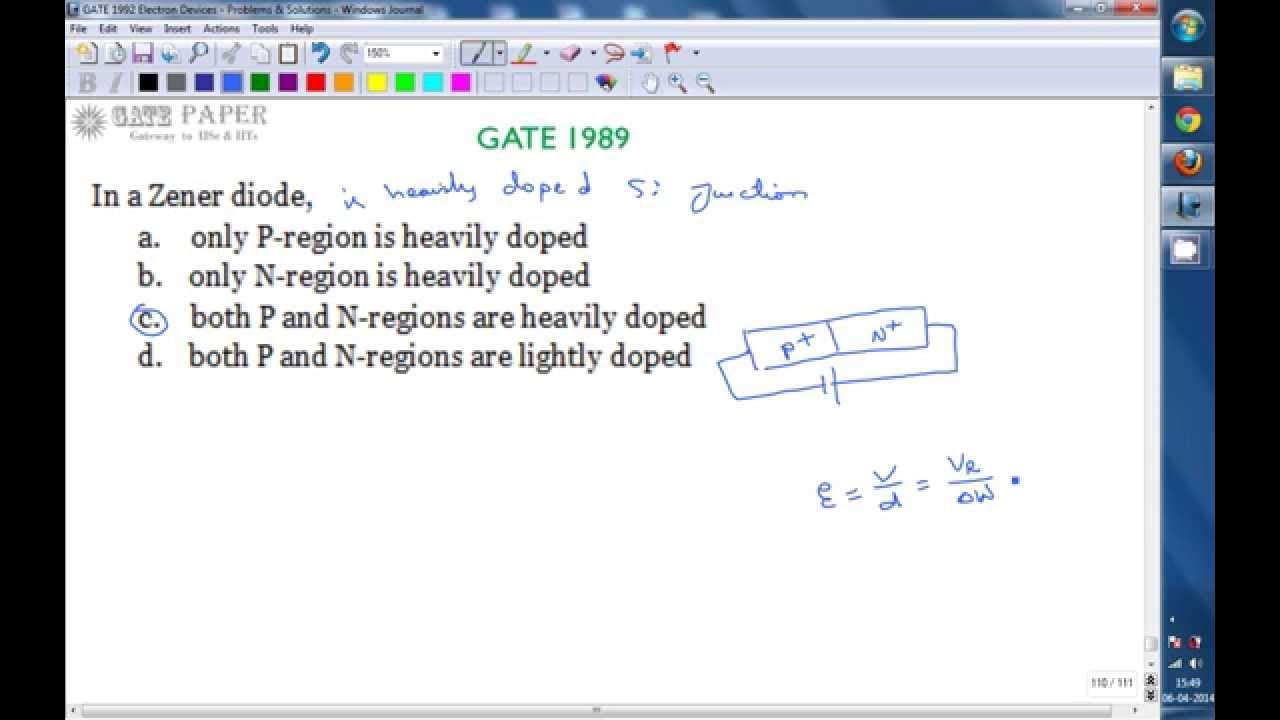 GATE 1992 Electron Devices - Problems & Solutions - Windows Journal
File Edit View Insert Actions Tools Help
150%
B I
GATE PAPER
Gateway to IISc & IITs
GATE 1989
In a Zener diode, is heavily doped Si Junction
a. only P-region is heavily doped
b. only N-region is heavily doped
c. both P and N-regions are heavily doped
d. both P and N-regions are lightly doped
P+ N+
ε = V/d = VR/DW
110 / 111
15:49
06-04-2014